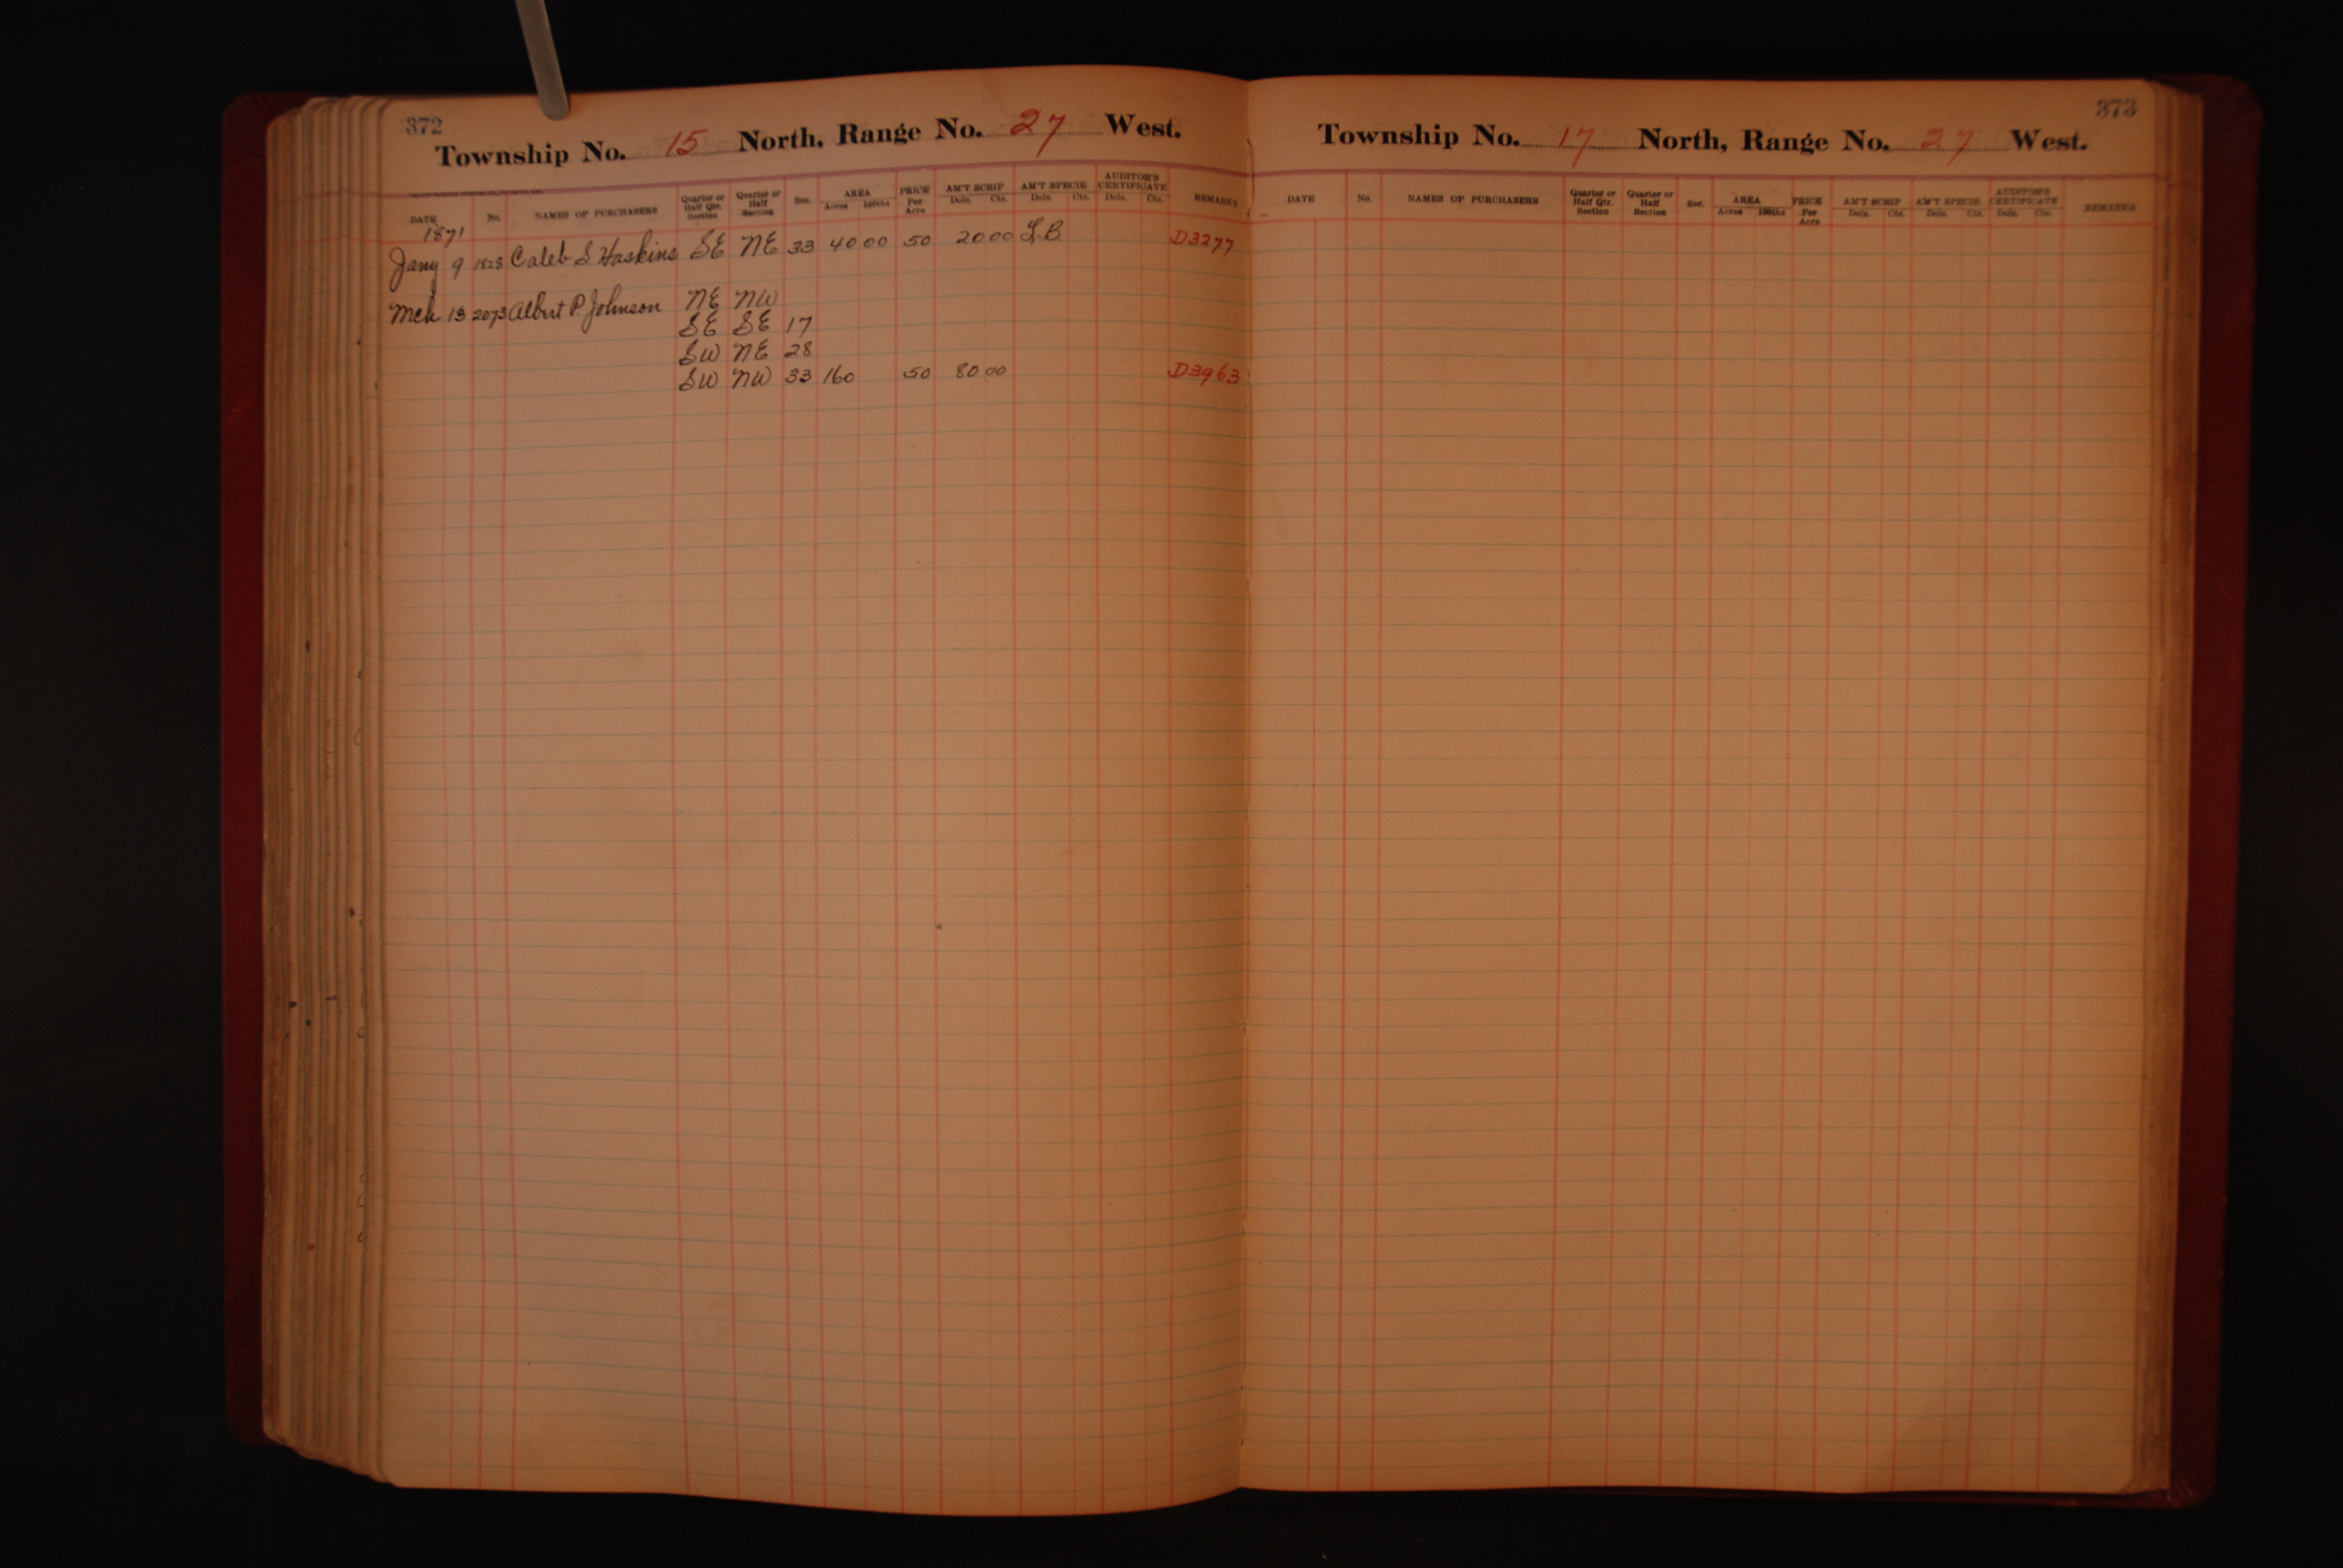 372
Township No. 15 North, Range No. 27 West.
DATE No. NAMES OF PURCHASERS Quarter or Half Qtr. Section Quarter or Half Section Sec. AREA Acres 100ths PRICE Per Acre AM'T SCRIP Dols. Cts. AM'T SPECIE Dols. Cts. AUDITOR'S CERTIFICATE Dols. Cts. REMARKS
1871
Jany 9 1828 Caleb S. Haskins SE NE 33 40 00 50 20 00 L.B D3277
Mch 13 2073 Albert P. Johnson NE NW
SE SE 17
SW NE 28
SW NW 33 160 50 80 00 D3963
373
Township No. 17 North, Range No. 27 West.
DATE No. NAMES OF PURCHASERS Quarter or Half Qtr. Section Quarter or Half Section Sec. AREA Acres 100ths PRICE Per Acre AM'T SCRIP Dols. Cts. AM'T SPECIE Dols. Cts. AUDITOR'S CERTIFICATE Dols. Cts. REMARKS